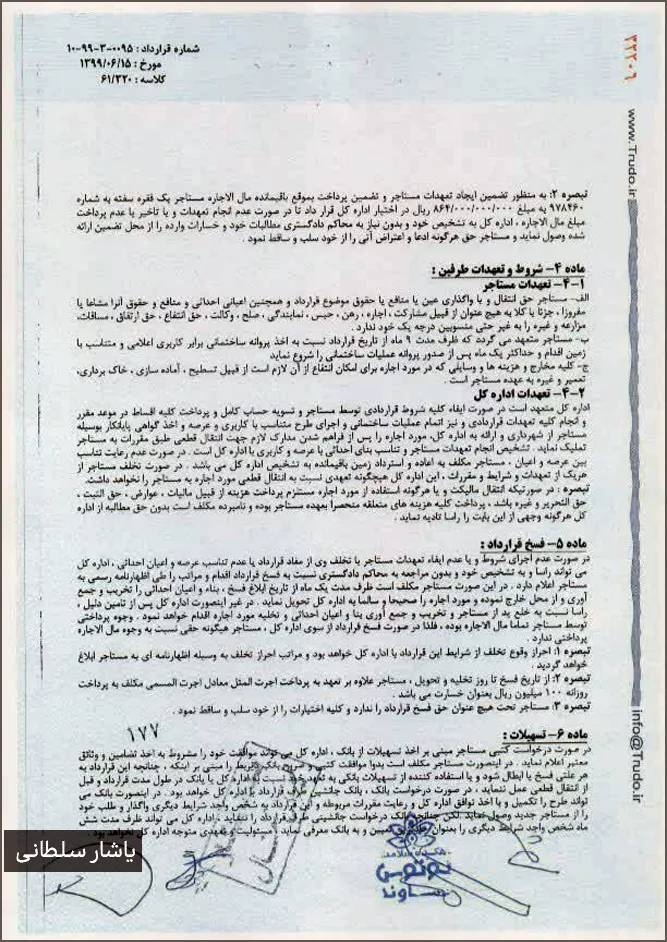 شماره قرارداد : ۰۰۹۵-۳-۹۹-۱۰
مورخ : ۱۳۹۹/۰۶/۱۵
کلاسه : ۶۱/۳۲۰
۳۲۲۰۶
www.Trudo.ir
تبصره ۲: به منظور تضمین ایجاد تعهدات مستاجر و تضمین پرداخت بموقع باقیمانده مال الاجاره مستاجر یک فقره سفته به شماره
۹۷۸۴۶۰ به مبلغ ۸۶۴/۰۰۰/۰۰۰/۰۰۰ ریال در اختیار اداره کل قرار داد تا در صورت عدم انجام تعهدات و یا تاخیر یا عدم پرداخت
مبلغ مال الاجاره ، اداره کل به تشخیص خود و بدون نیاز به محاکم دادگستری مطالبات خود و خسارات وارده را از محل تضمین ارائه
شده وصول نماید و مستاجر حق هرگونه ادعا و اعتراض آتی را از خود سلب و ساقط نمود .
ماده ۴- شروط و تعهدات طرفین :
۴-۱- تعهدات مستاجر
الف- مستاجر حق انتقال و یا واگذاری عین یا منافع یا حقوق موضوع قرارداد و همچنین اعیانی احداثی و منافع و حقوق آنرا مشاعا یا
مفروزا ، جزئا یا کلا به هیچ عنوان از قبیل مشارکت ، اجاره ، رهن ، حبس ، نمایندگی ، صلح ، وکالت ، حق انتفاع ، حق ارتفاق ، مساقات،
مزارعه و غیره را به غیر حتی منسوبین درجه یک خود ندارد .
ب- مستاجر متعهد می گردد که ظرف مدت ۹ ماه از تاریخ قرارداد نسبت به اخذ پروانه ساختمانی برابر کاربری اعلامی و متناسب با
زمین اقدام و حداکثر یک ماه پس از صدور پروانه عملیات ساختمانی را شروع نماید
ج- کلیه مخارج و هزینه ها و وسایلی که در مورد اجاره برای امکان انتفاع از آن لازم است از قبیل تسطیح ، آماده سازی ، خاک برداری،
تعمیر و غیره به عهده مستاجر است .
۴-۲- تعهدات اداره کل
اداره کل متعهد است در صورت ایفاء کلیه شروط قراردادی توسط مستاجر و تسویه حساب کامل و پرداخت کلیه اقساط در موعد مقرر
و انجام کلیه تعهدات قراردادی و نیز اتمام عملیات ساختمانی و اجرای طرح متناسب با کاربری و عرصه و اخذ گواهی پایانکار بوسیله
مستاجر از شهرداری و ارائه به اداره کل، مورد اجاره را پس از فراهم شدن مدارک لازم جهت انتقال قطعی طبق مقررات به مستاجر
تملیک نماید . تشخیص انجام تعهدات مستاجر و تناسب بنای احداثی با عرصه و کاربری با اداره کل است . در صورت عدم رعایت تناسب
بین عرصه و اعیان ، مستاجر مکلف به اعاده و استرداد زمین باقیمانده به تشخیص اداره کل می باشد . در صورت تخلف مستاجر از
هریک از تعهدات و شرایط و مقررات ، این اداره کل هیچگونه تعهدی نسبت به انتقال قطعی مورد اجاره به مستاجر را نخواهد داشت.
تبصره : در صورتیکه انتقال مالیکت و یا هرگونه استفاده از مورد اجاره مستلزم پرداخت هزینه از قبیل مالیات ، عوارض ، حق الثبت ،
حق التحریر و غیره باشد ، پرداخت کلیه هزینه های متعلقه منحصرا بعهده مستاجر بوده و نامبرده مکلف است بدون حق مطالبه از اداره
کل هرگونه وجهی از این بابت را راسا تادیه نماید .
ماده ۵- فسخ قرارداد :
در صورت عدم اجرای شروط و یا عدم ایفاء تعهدات مستاجر یا تخلف وی از مفاد قرارداد یا عدم تناسب عرصه و اعیان احداثی ، اداره کل
می تواند راسا و به تشخیص خود و بدون مراجعه به محاکم دادگستری نسبت به فسخ قرارداد اقدام و مراتب را طی اظهارنامه رسمی به
مستاجر اعلام دارد . در این صورت مستاجر مکلف است ظرف مدت یک ماه از تاریخ ابلاغ فسخ ، بناء و اعیان احداثی را تخریب و جمع
آوری و از محل خارج نموده و مورد اجاره را صحیحا و سالما به اداره کل تحویل نماید . در غیر اینصورت اداره کل پس از تامین دلیل ،
راسا نسبت به خلع ید از مستاجر و تخریب و جمع آوری بنا و اعیان احداثی و تخلیه مورد اجاره اقدام خواهد نمود . وجوه پرداختی
توسط مستاجر تماما مال الاجاره بوده ، فلذا در صورت فسخ قرارداد از سوی اداره کل ، مستاجر هیگونه حقی نسبت به وجوه مال الاجاره
پرداختی ندارد .
تبصره ۱: احراز وقوع تخلف از شرایط این قرارداد با اداره کل خواهد بود و مراتب احراز تخلف به وسیله اظهارنامه ای به مستاجر ابلاغ
خواهد گردید .
تبصره ۲: از تاریخ فسخ تا روز تخلیه و تحویل ، مستاجر علاوه بر تعهد به پرداخت اجرت المثل معادل اجرت المسمی مکلف به پرداخت
روزانه ۱۰۰ میلیون ریال بعنوان خسارت می باشد .
تبصره ۳: مستاجر تحت هیچ عنوان حق فسخ قرارداد را ندارد و کلیه اختیارات را از خود سلب و ساقط نمود .
۱۷۷
ماده ۶- تسهیلات :
در صورت درخواست کتبی مستاجر مبنی بر اخذ تسهیلات از بانک ، اداره کل می تواند موافقت خود را مشروط به اخذ تضامین و وثائق
معتبر اعلام نماید . در اینصورت مستاجر مکلف است بدوا موافقت کتبی و صریح بانک ذیربط را مبنی بر اینکه ، چنانچه این قرارداد به
هر علتی فسخ یا ابطال شود و یا استفاده کننده از تسهیلات بانکی به تعهد خود نسبت به اداره کل یا بانک در طول مدت قرارداد و قبل
از انتقال قطعی عمل ننماید ، در صورت درخواست بانک ، بانک جانشین طرف قرارداد با اداره کل خواهد بود . در اینصورت بانک می
تواند طرح را تکمیل و با اخذ توافق اداره کل و رعایت مقررات مربوطه و این قرارداد به شخص واجد شرایط دیگری واگذار و طلب خود
را از مستاجر جدید وصول نماید لکن چنانچه بانک درخواست جانشینی طرف قرارداد را ننماید ، اداره کل می تواند ظرف مدت شش
ماه شخص واجد شرایط دیگری را بعنوان تعیین و به بانک معرفی نماید . مسئولیت و تعهدی متوجه اداره کل نخواهد بود .
info@Trudo.ir
یاشار سلطانی